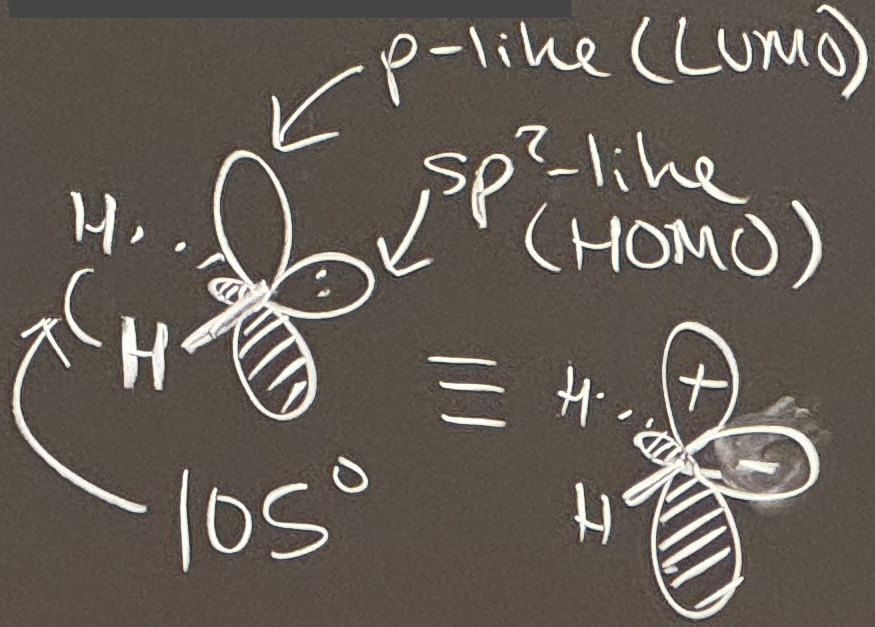 p-like (LUMO)
sp²-like
(HOMO)
H
:
H
105°
≡
H
+
-
H